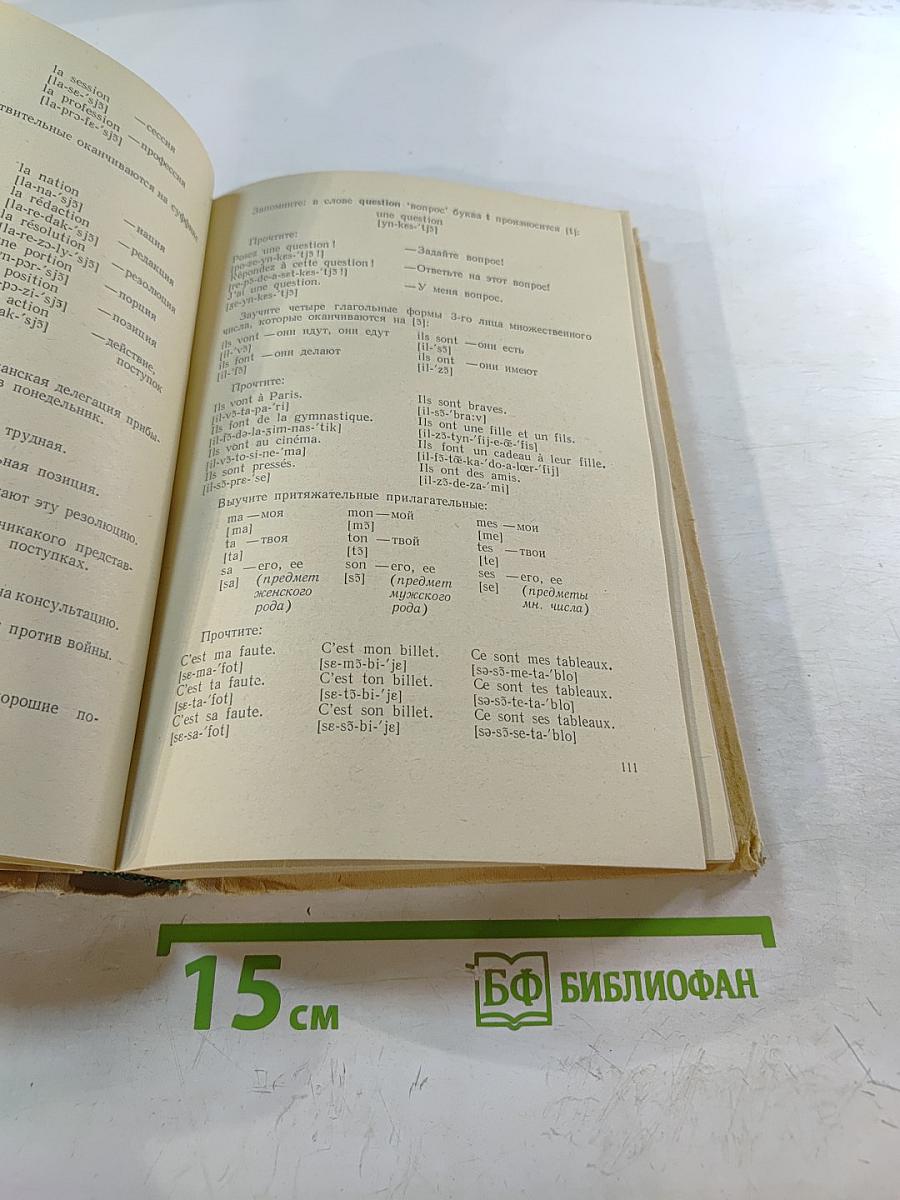 la session
[la-sɛ-'sjɔ̃] —сессия
la profession
[la-prɔ-fɛ-'sjɔ̃] —профессия
твительные оканчиваются на суффикс
la nation
[la-na-'sjɔ̃] —нация
la rédaction
[la-re-dak-'sjɔ̃] —редакция
la résolution
[la-re-zɔ-ly-'sjɔ̃] —резолюция
ne portion
n-pɔr-'sjɔ̃] —порция
position
-pɔ-zi-'sjɔ̃] —позиция
action
ak-'sjɔ̃] —действие,
поступок
анская делегация прибы-
в понедельник.
трудная.
ьная позиция.
ают эту резолюцию.
никакого представ-
поступках.
на консультацию.
против войны.
хорошие по-
Запомните: в слове question 'вопрос' буква t произносится [t]:
une question
[yn-kɛs-'tjɔ̃]
Прочтите:
Posez une question! —Задайте вопрос!
[po-ze-yn-kɛs-'tjɔ̃!]
Répondez à cette question! —Ответьте на этот вопрос!
[re-pɔ̃-de-a-sɛt-kɛs-'tjɔ̃!]
J'ai une question. —У меня вопрос.
[ʒe-yn-kɛs-'tjɔ̃]
Заучите четыре глагольные формы 3-го лица множественного
числа, которые оканчиваются на [ɔ̃]:
ils vont —они идут, они едут ils sont —они есть
[il-'vɔ̃] [il-'sɔ̃]
ils font —они делают ils ont —они имеют
[il-'fɔ̃] [il-'zɔ̃]
Прочтите:
Ils vont à Paris. Ils sont braves.
[il-vɔ̃-ta-pa-'ri] [il-sɔ̃-'bra:v]
Ils font de la gymnastique. Ils ont une fille et un fils.
[il-fɔ̃-də-la-ʒim-nas-'tik] [il-zɔ̃-tyn-'fij-e-œ̃-'fis]
Ils vont au cinéma. Ils font un cadeau à leur fille.
[il-vɔ̃-to-si-ne-'ma] [il-fɔ̃-tœ̃-ka-'do-a-lœr-'fij]
Ils sont pressés. Ils ont des amis.
[il-sɔ̃-prɛ-'se] [il-zɔ̃-de-za-'mi]
Выучите притяжательные прилагательные:
ma —моя mon —мой mes —мои
[ma] [mɔ̃] [me]
ta —твоя ton —твой tes —твои
[ta] [tɔ̃] [te]
sa —его, ее son —его, ее ses —его, ее
[sa] (предмет [sɔ̃] (предмет [se] (предметы
женского мужского мн. числа)
рода) рода)
Прочтите:
C'est ma faute. C'est mon billet. Ce sont mes tableaux.
[sɛ-ma-'fot] [sɛ-mɔ̃-bi-'jɛ] [sə-sɔ̃-me-ta-'blo]
C'est ta faute. C'est ton billet. Ce sont tes tableaux.
[sɛ-ta-'fot] [sɛ-tɔ̃-bi-'jɛ] [sə-sɔ̃-te-ta-'blo]
C'est sa faute. C'est son billet. Ce sont ses tableaux.
[sɛ-sa-'fot] [sɛ-sɔ̃-bi-'jɛ] [sə-sɔ̃-se-ta-'blo]
111
15 см БФ БИБЛИОФАН